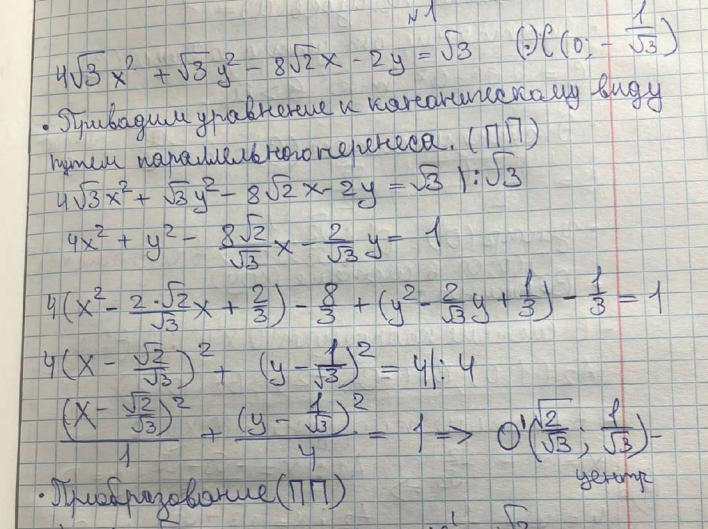 №1
4√3x² + √3y² - 8√2x - 2y = √3 (·)C(0; -1/√3)
• Привадим уравнение к каноническому виду
путем параллельного перенеса. (ПП)
4√3x² + √3y² - 8√2x - 2y = √3 |:√3
4x² + y² - 8√2/√3 x - 2/√3 y = 1
4(x² - 2·√2/√3 x + 2/3) - 8/3 + (y² - 2/√3 y + 1/3) - 1/3 = 1
4(x - √2/√3)² + (y - 1/√3)² = 4 |:4
(x - √2/√3)²/1 + (y - 1/√3)²/4 = 1 => O'(√2/√3; 1/√3) -
центр
• Приобразование (ПП)